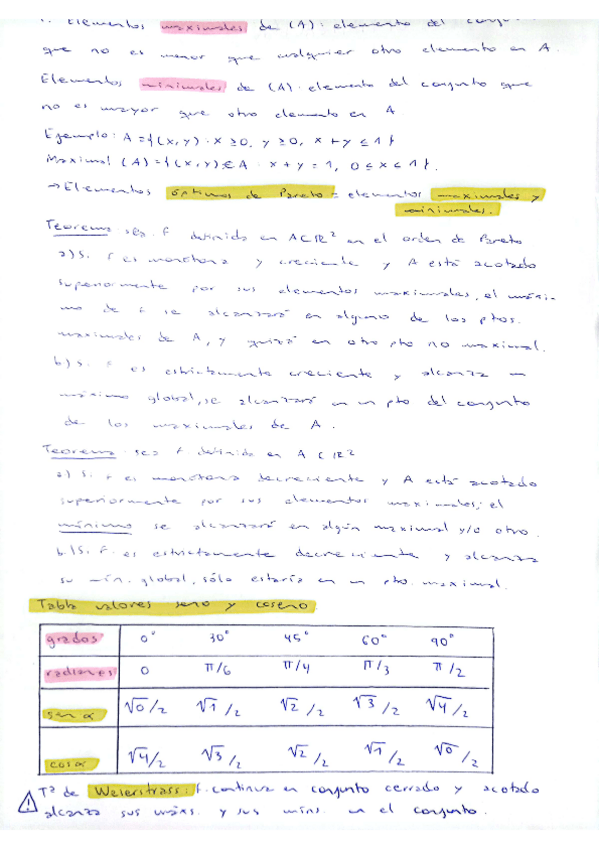 Elementos maximales de (A): elemento del conju
que no es menor que cualquier otro elemento en A.
Elementos minimales de (A): elemento del conjunto que
no es mayor que otro elemento en A
Ejemplo: A = {(x,y) · x ≥ 0, y ≥ 0, x + y ≤ 1}
Maximal (A) = {(x,y) ∈ A · x + y = 1, 0 ≤ x ≤ 1}.
→ Elementos óptimos de Pareto = elementos maximales y
minimales.
Teorema: sea f definida en A ⊂ ℝ² en el orden de Pareto
a) Si f es monótona y creciente y A está acotado
superiormente por sus elementos maximales, el máxi-
mo de f se alcanzará en alguno de los ptos.
maximales de A, y quizá en otro pto no maximal.
b) Si f es estrictamente creciente y alcanza un
máximo global, se alcanzará en un pto del conjunto
de los maximales de A.
Teorema: sea f definida en A ⊂ ℝ²
a) Si f es monótona decreciente y A está acotado
superiormente por sus elementos maximales; el
mínimo se alcanzará en algún maximal y/o otro.
b) Si f es estrictamente decreciente y alcanza
su mín. global, sólo estaría en un pto. maximal.
Tabla valores seno y coseno
grados 0° 30° 45° 60° 90°
radianes 0 π/6 π/4 π/3 π/2
sen α √0/2 √1/2 √2/2 √3/2 √4/2
cos α √4/2 √3/2 √2/2 √1/2 √0/2
! Tª de Weierstrass: f. continua en conjunto cerrado y acotado
alcanza sus máxs. y sus míns. en el conjunto.